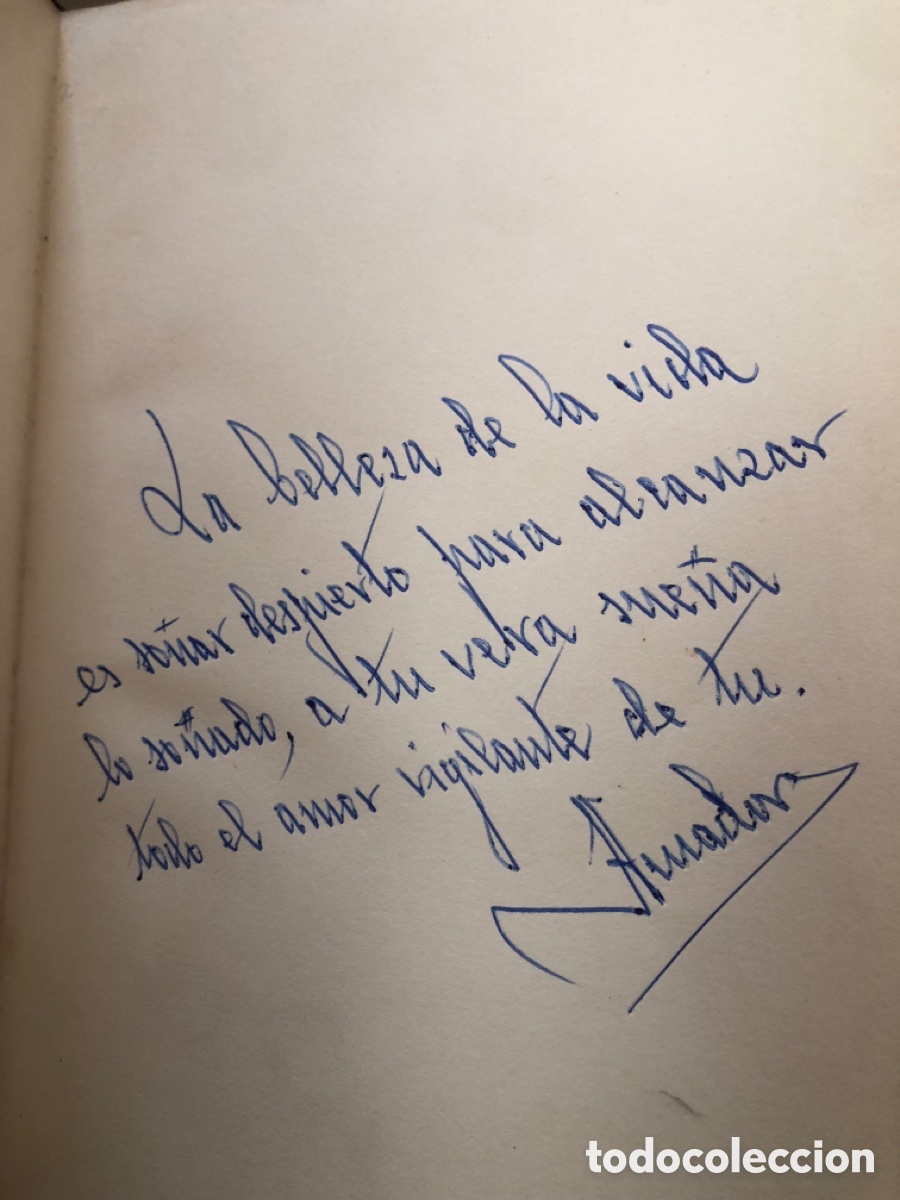 La belleza de la vida
es soñar despierto para alcanzar
lo soñado, a tu vera sueña
todo el amor vigilante de tu.
Amador
todocoleccion